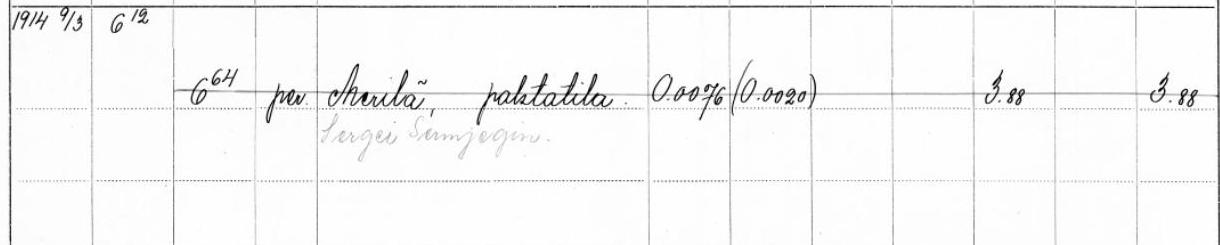 1914 9/3 6 12
6 64 per. Merilä, palstatila. 0.0076 (0.0020) 3.88 3.88
Sergei Semjagin.